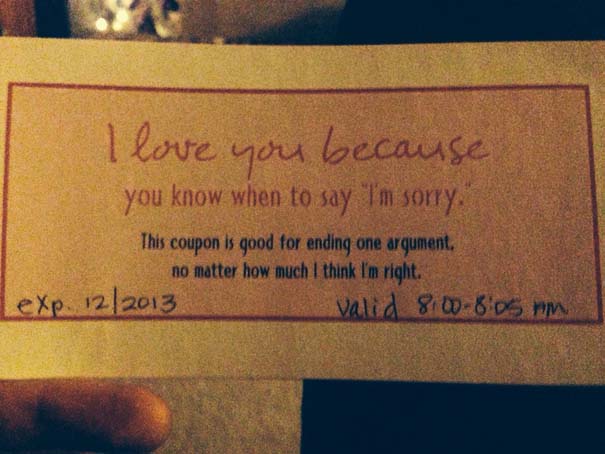 I love you because
you know when to say "I'm sorry."
This coupon is good for ending one argument,
no matter how much I think I'm right.
exp. 12/2013 valid 8:00-8:05 pm